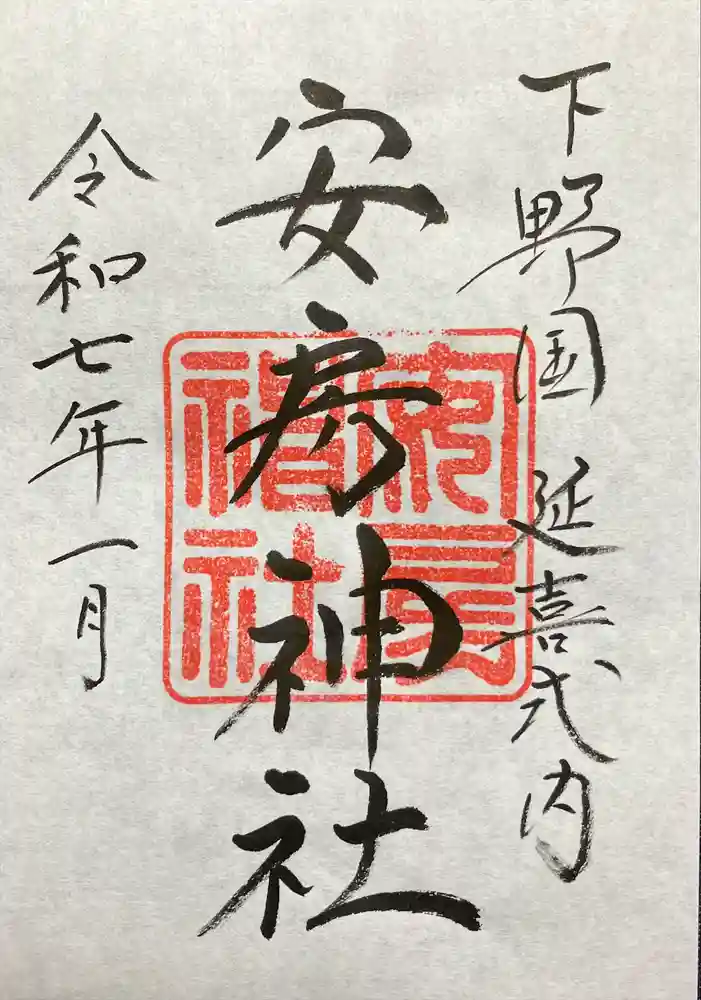 下野国 延喜式内
安房神社
安房神社
令和七年一月